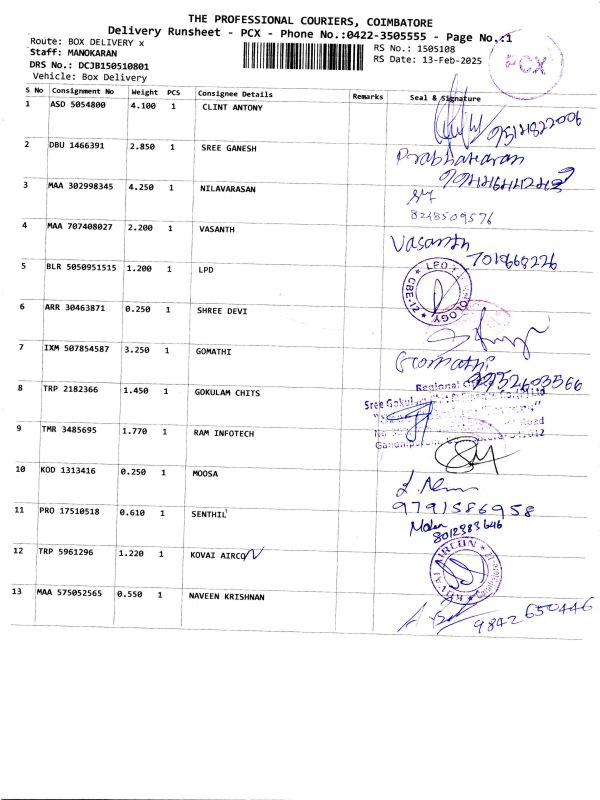 THE PROFESSIONAL COURIERS, COIMBATORE
Delivery Runsheet - PCX - Phone No.:0422-3505555 - Page No.:1
Route: BOX DELIVERY x
RS No.: 1505108
Staff: MANOKARAN
RS Date: 13-Feb-2025
DRS No.: DCJB150510801
Vehicle: Box Delivery
PCX
S No Consignment No Weight PCS Consignee Details Remarks Seal & Signature
1 ASD 5054800 4.100 1 CLINT ANTONY
2 DBU 1466391 2.850 1 SREE GANESH
Prabhakaran
3 MAA 302998345 4.250 1 NILAVARASAN
8248509576
4 MAA 707408027 2.200 1 VASANTH
Vasanth
7019668226
5 BLR 5050951515 1.200 1 LPD
LPD
CBE-12
6 ARR 30463871 0.250 1 SHREE DEVI
7 IXM 507854587 3.250 1 GOMATHI
Gomathi
8 TRP 2182366 1.450 1 GOKULAM CHITS
Regional
Sree Gokulam
Road
9 TMR 3485695 1.770 1 RAM INFOTECH
10 KOD 1313416 0.250 1 MOOSA
9791586958
11 PRO 17510518 0.610 1 SENTHIL
8012383646
12 TRP 5961296 1.220 1 KOVAI AIRCON
KOVAI AIRCON
13 MAA 575052565 0.550 1 NAVEEN KRISHNAN
9842650446